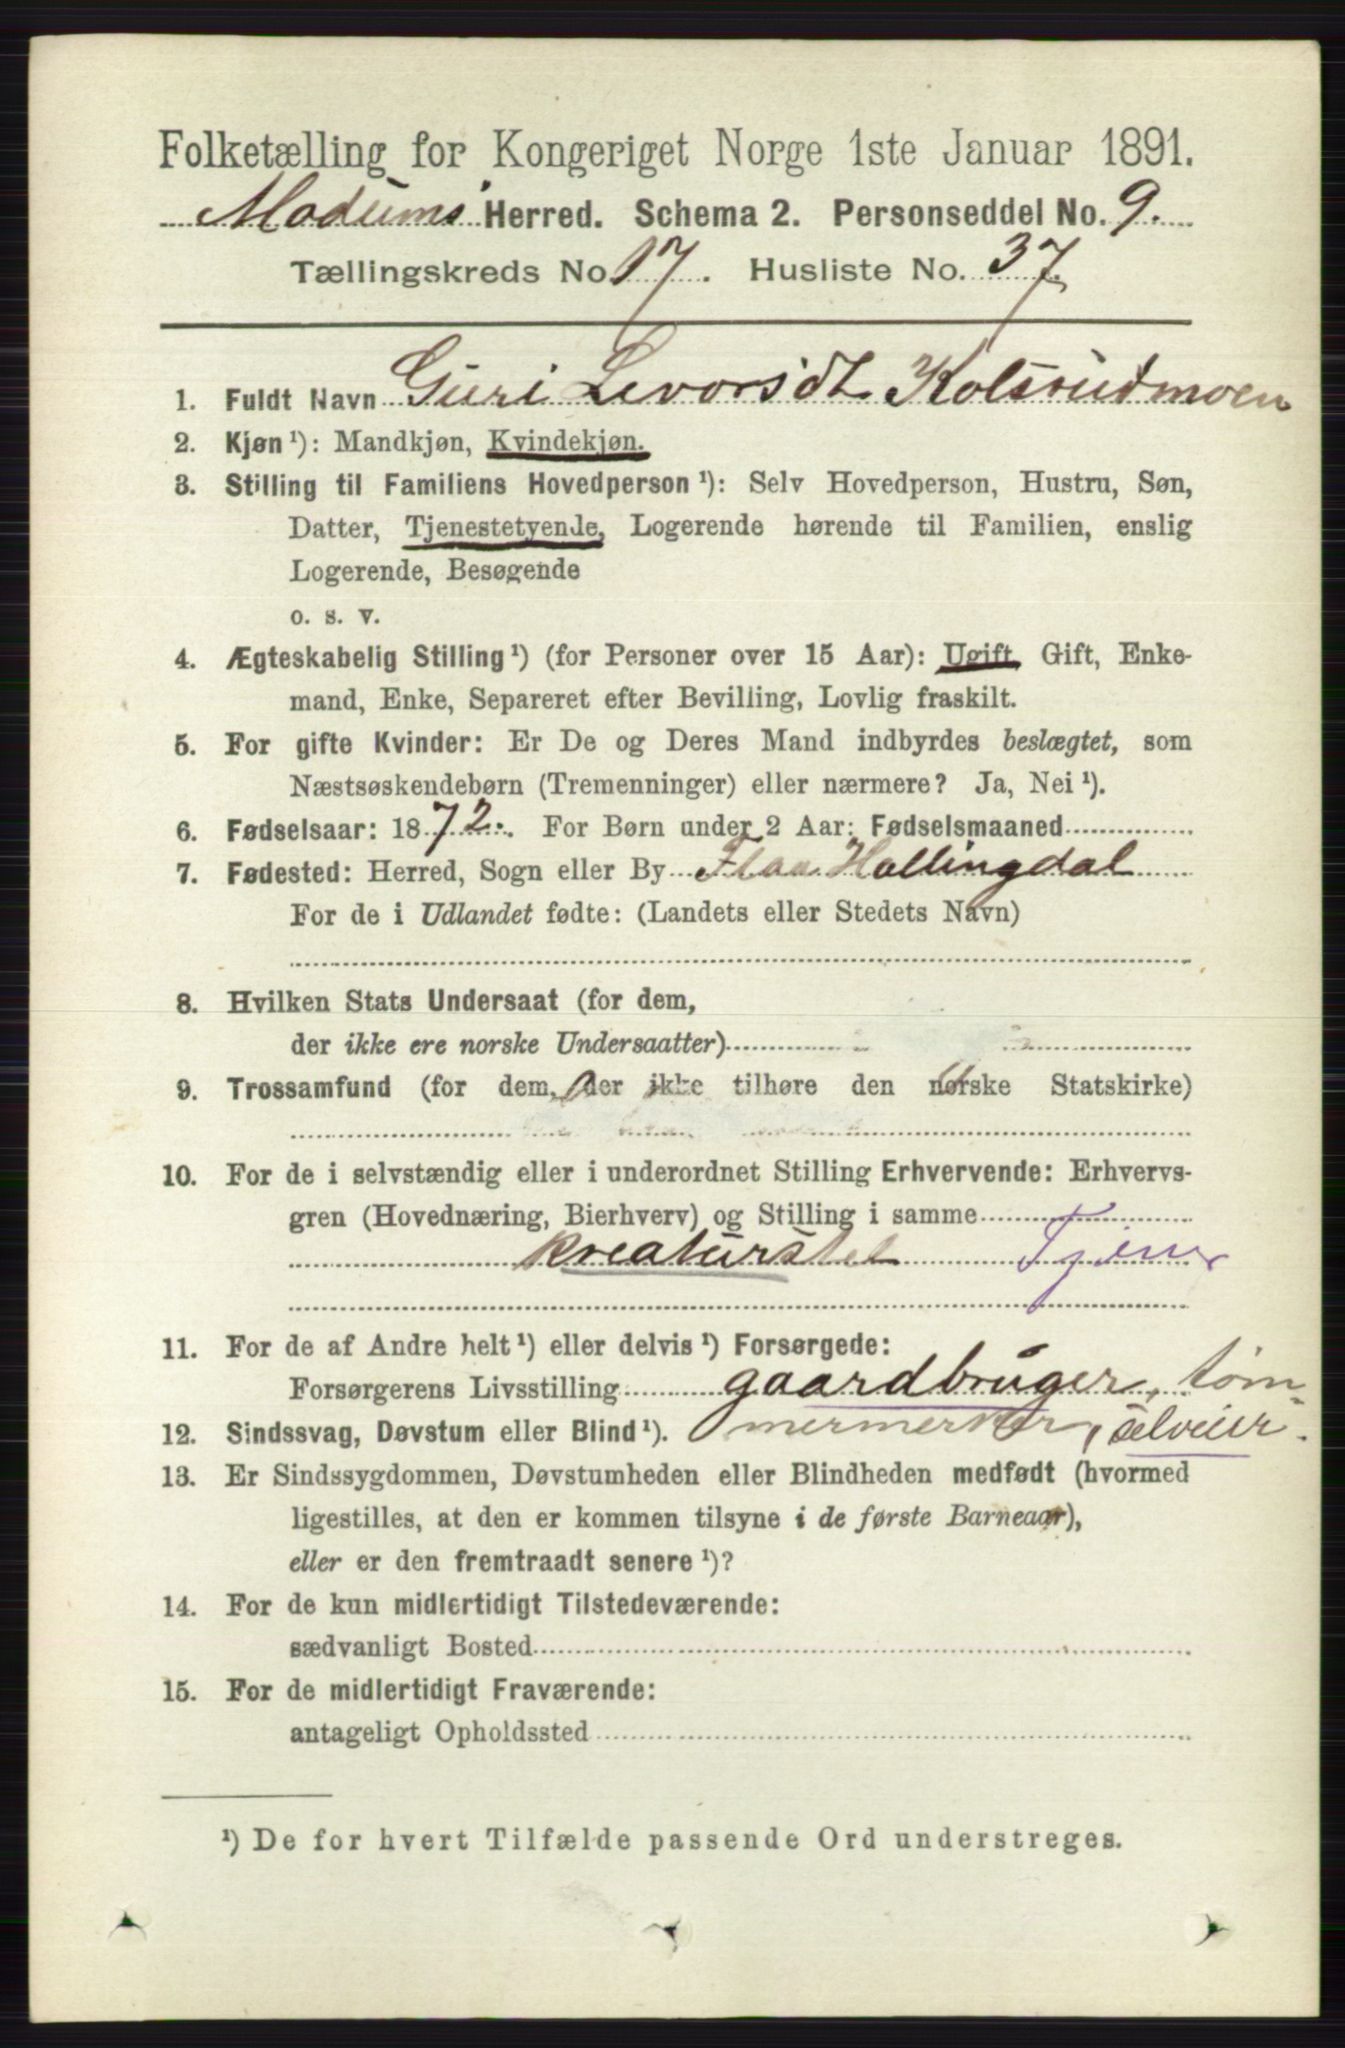 Folketælling for Kongeriget Norge 1ste Januar 1891.
Modums Herred. Schema 2. Personseddel No. 9.
Tællingskreds No. 17. Husliste No. 37.
1. Fuldt Navn Guri Levorsdt Kolsrudmoen
2. Kjøn ¹): Mandkjøn, Kvindekjøn.
3. Stilling til Familiens Hovedperson ¹): Selv Hovedperson, Hustru, Søn,
Datter, Tjenestetyende, Logerende hørende til Familien, enslig
Logerende, Besøgende
o. s. v.
4. Ægteskabelig Stilling ¹) (for Personer over 15 Aar): Ugift, Gift, Enke-
mand, Enke, Separeret efter Bevilling, Lovlig fraskilt.
5. For gifte Kvinder: Er De og Deres Mand indbyrdes beslægtet, som
Næstsøskendebørn (Tremenninger) eller nærmere? Ja, Nei ¹).
6. Fødselsaar: 1872. For Børn under 2 Aar: Fødselsmaaned
7. Fødested: Herred, Sogn eller By Flaa Hallingdal
For de i Udlandet fødte: (Landets eller Stedets Navn)
8. Hvilken Stats Undersaat (for dem,
der ikke ere norske Undersaatter)
9. Trossamfund (for dem, der ikke tilhøre den norske Statskirke)
10. For de i selvstændig eller i underordnet Stilling Erhvervende: Erhvervs-
gren (Hovednæring, Bierhverv) og Stilling i samme
kreaturstel Tjener
11. For de af Andre helt ¹) eller delvis ¹) Forsørgede:
Forsørgerens Livsstilling gaardbruger, tøm-
12. Sindssvag, Døvstum eller Blind ¹). mermerker, selveier.
13. Er Sindssygdommen, Døvstumheden eller Blindheden medfødt (hvormed
ligestilles, at den er kommen tilsyne i de første Barneaar),
eller er den fremtraadt senere ¹)?
14. For de kun midlertidigt Tilstedeværende:
sædvanligt Bosted
15. For de midlertidigt Fraværende:
antageligt Opholdssted
¹) De for hvert Tilfælde passende Ord understreges.